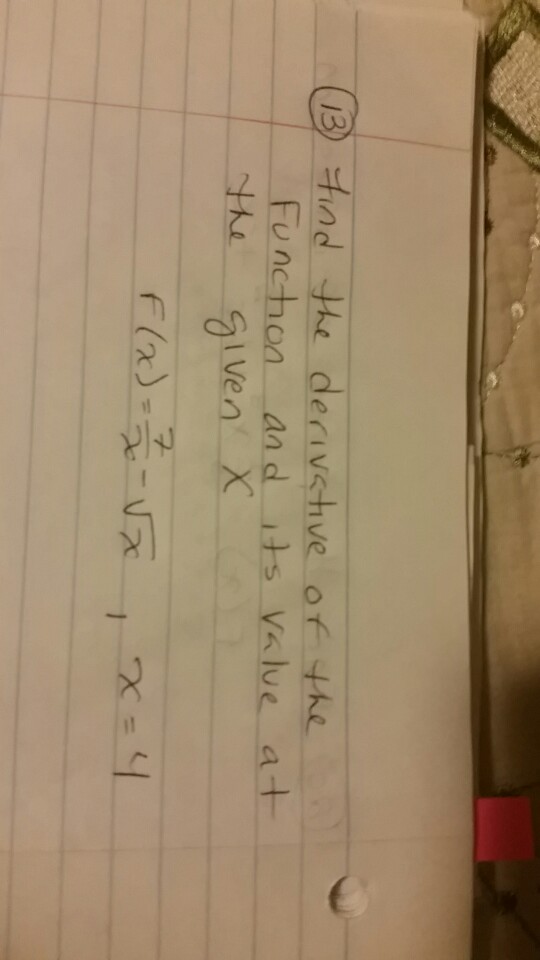 13 find the derivative of the
Function and its value at
the given x
F(x) = 7/x - √x , x = 4